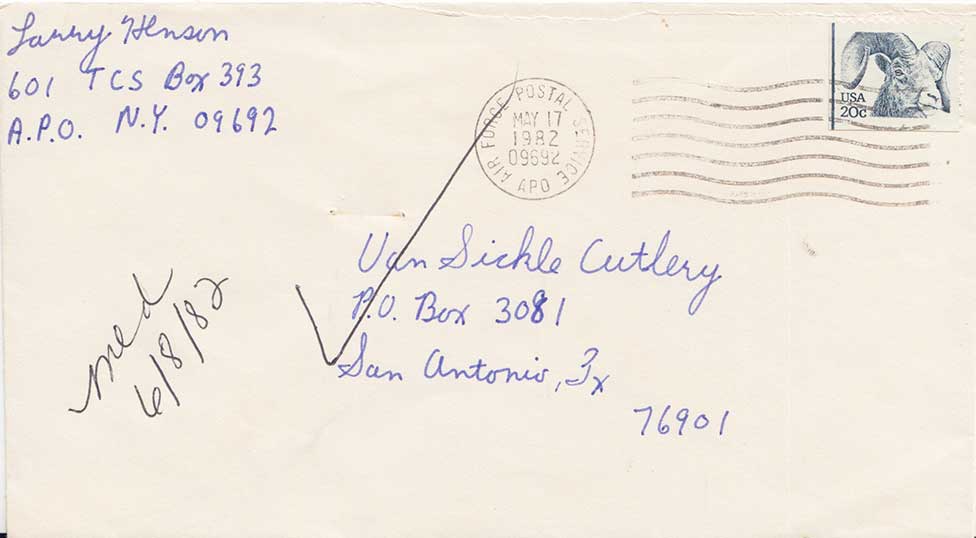 Larry Henson
601 TCS Box 393
A.P.O. N.Y. 09692
USA
20c
AIR FORCE POSTAL SERVICE
MAY 17
1982
09692
APO
Van Sickle Cutlery
P.O. Box 3081
San Antonio, Tx
76901
med
6/8/82